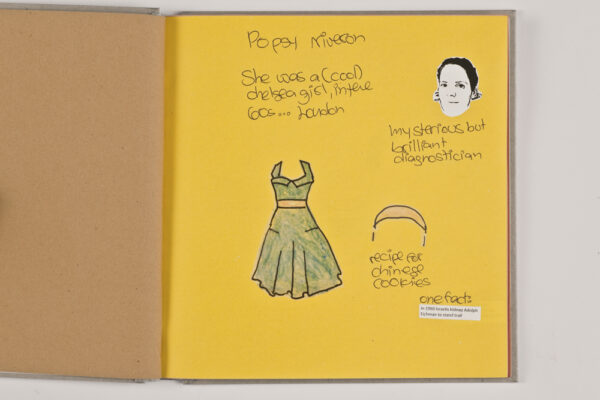 Popsy
She was a (cool)
chelsea girl, in the
60s... London
mysterious but
brilliant
diagnostician
recipe for
chinese
cookies
one fact:
in 1960 Israelis kidnap Adolph
Eichman to stand trail